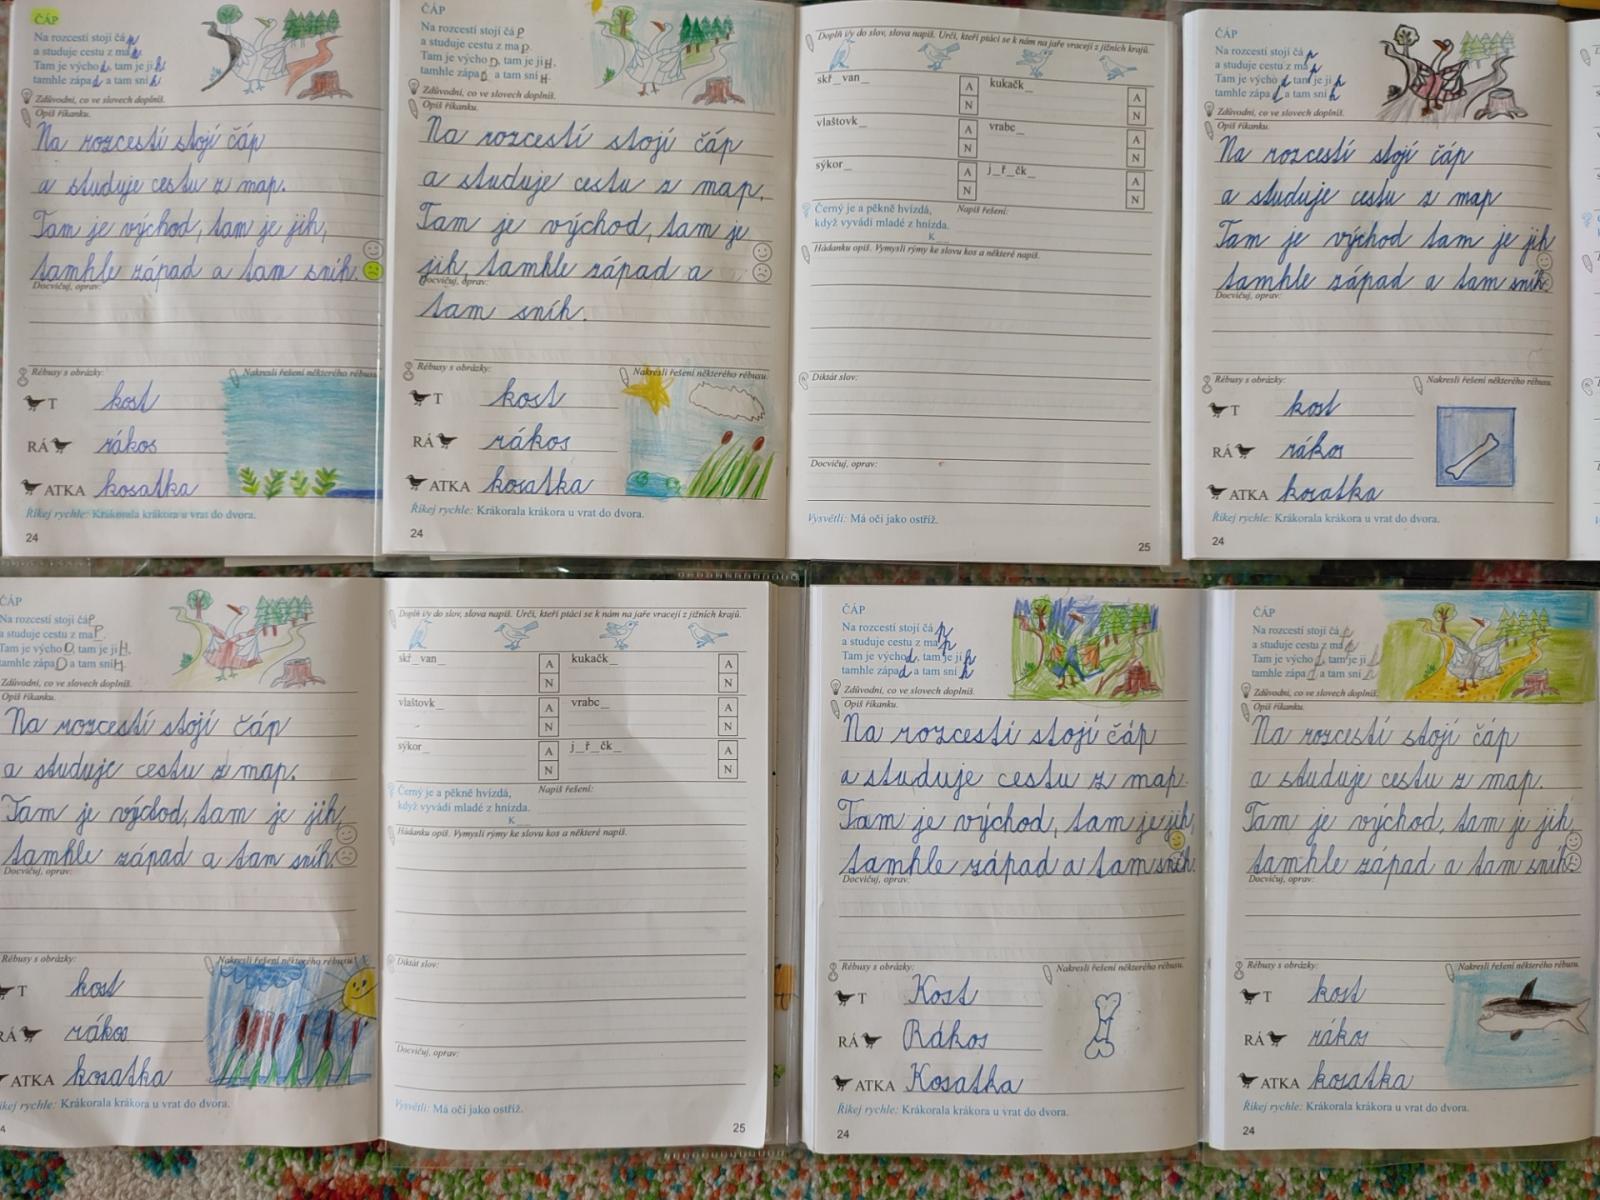 ČÁP
Na rozcestí stojí čáp
a studuje cestu z map.
Tam je východ, tam je jih
tamhle západ a tam sníh
Zdůvodni, co ve slovech doplníš.
Opiš říkanku.
Na rozcestí stojí čáp
a studuje cestu z map.
Tam je východ, tam je jih,
tamhle západ a tam sníh.
Docvičuj, oprav:
Rébusy s obrázky:
Nakresli řešení některého rébusu.
T kost
RÁ rákos
ATKA kosatka
Říkej rychle: Krákorala krákora u vrat do dvora.
24
ČÁP
Na rozcestí stojí čáp
a studuje cestu z map.
Tam je východ, tam je jiH.
tamhle západ a tam sniH.
Zdůvodni, co ve slovech doplníš.
Opiš říkanku.
Na rozcestí stojí čáp
a studuje cestu z map.
Tam je východ, tam je
jih, tamhle západ a
Docvičuj, oprav:
tam sníh.
Rébusy s obrázky:
Nakresli řešení některého rébusu.
T kost
RÁ rákos
ATKA kosatka
Říkej rychle: Krákorala krákora u vrat do dvora.
24
Doplň i/y do slov, slova napiš. Urči, kteří ptáci se k nám na jaře vracejí z jižních krajů.
skř_van_ A N kukačk_ A N
vlaštovk_ A N vrabc_ A N
sýkor_ A N j_ř_čk_ A N
Černý je a pěkně hvízdá,
Napiš řešení:
když vyvádí mladé z hnízda.
K
Hádanku opiš. Vymysli rýmy ke slovu kos a některé napiš.
Diktát slov:
Docvičuj, oprav:
Vysvětli: Má oči jako ostříž.
25
ČÁP
Na rozcestí stojí čáp
a studuje cestu z map
Tam je východ, tam je jih
tamhle západ a tam sníh
Zdůvodni, co ve slovech doplníš.
Opiš říkanku.
Na rozcestí stojí čáp
a studuje cestu z map
Tam je východ tam je jih
tamhle západ a tam sníh
Docvičuj, oprav:
Rébusy s obrázky:
Nakresli řešení některého rébusu.
T kost
RÁ rákos
ATKA kosatka
Říkej rychle: Krákorala krákora u vrat do dvora.
24
ČÁP
Na rozcestí stojí čáP
a studuje cestu z maP.
Tam je výchoD, tam je jiH.
tamhle zápaD a tam sniH.
Zdůvodni, co ve slovech doplníš.
Opiš říkanku.
Na rozcestí stojí čáp
a studuje cestu z map.
Tam je východ, tam je jih,
tamhle západ a tam sníh.
Docvičuj, oprav:
Rébusy s obrázky:
Nakresli řešení některého rébusu.
T kost
RÁ rákos
ATKA kosatka
Říkej rychle: Krákorala krákora u vrat do dvora.
4
Doplň i/y do slov, slova napiš. Urči, kteří ptáci se k nám na jaře vracejí z jižních krajů.
skř_van_ A N kukačk_ A N
vlaštovk_ A N vrabc_ A N
sýkor_ A N j_ř_čk_ A N
Černý je a pěkně hvízdá,
Napiš řešení:
když vyvádí mladé z hnízda.
K
Hádanku opiš. Vymysli rýmy ke slovu kos a některé napiš.
Diktát slov:
Docvičuj, oprav:
Vysvětli: Má oči jako ostříž.
25
ČÁP
Na rozcestí stojí čáp
a studuje cestu z map
Tam je východ, tam je jih
tamhle západ a tam sníh
Zdůvodni, co ve slovech doplníš.
Opiš říkanku.
Na rozcestí stojí čáp
a studuje cestu z map.
Tam je východ, tam je jih,
tamhle západ a tam sníh.
Docvičuj, oprav:
Rébusy s obrázky:
Nakresli řešení některého rébusu.
T Kost
RÁ Rákos
ATKA Kosatka
Říkej rychle: Krákorala krákora u vrat do dvora.
24
ČÁP
Na rozcestí stojí čáp
a studuje cestu z map
Tam je tam je
tamhle a tam
Zdůvodni, co ve slovech doplníš.
Opiš říkanku.
Na rozcestí stojí čáp
a studuje cestu z map.
Tam je východ, tam je jih,
tamhle západ a tam sníh.
Docvičuj, oprav:
Rébusy s obrázky:
Nakresli řešení některého rébusu.
T kost
RÁ rákos
ATKA kosatka
Říkej rychle: Krákorala krákora u vrat do dvora.
24